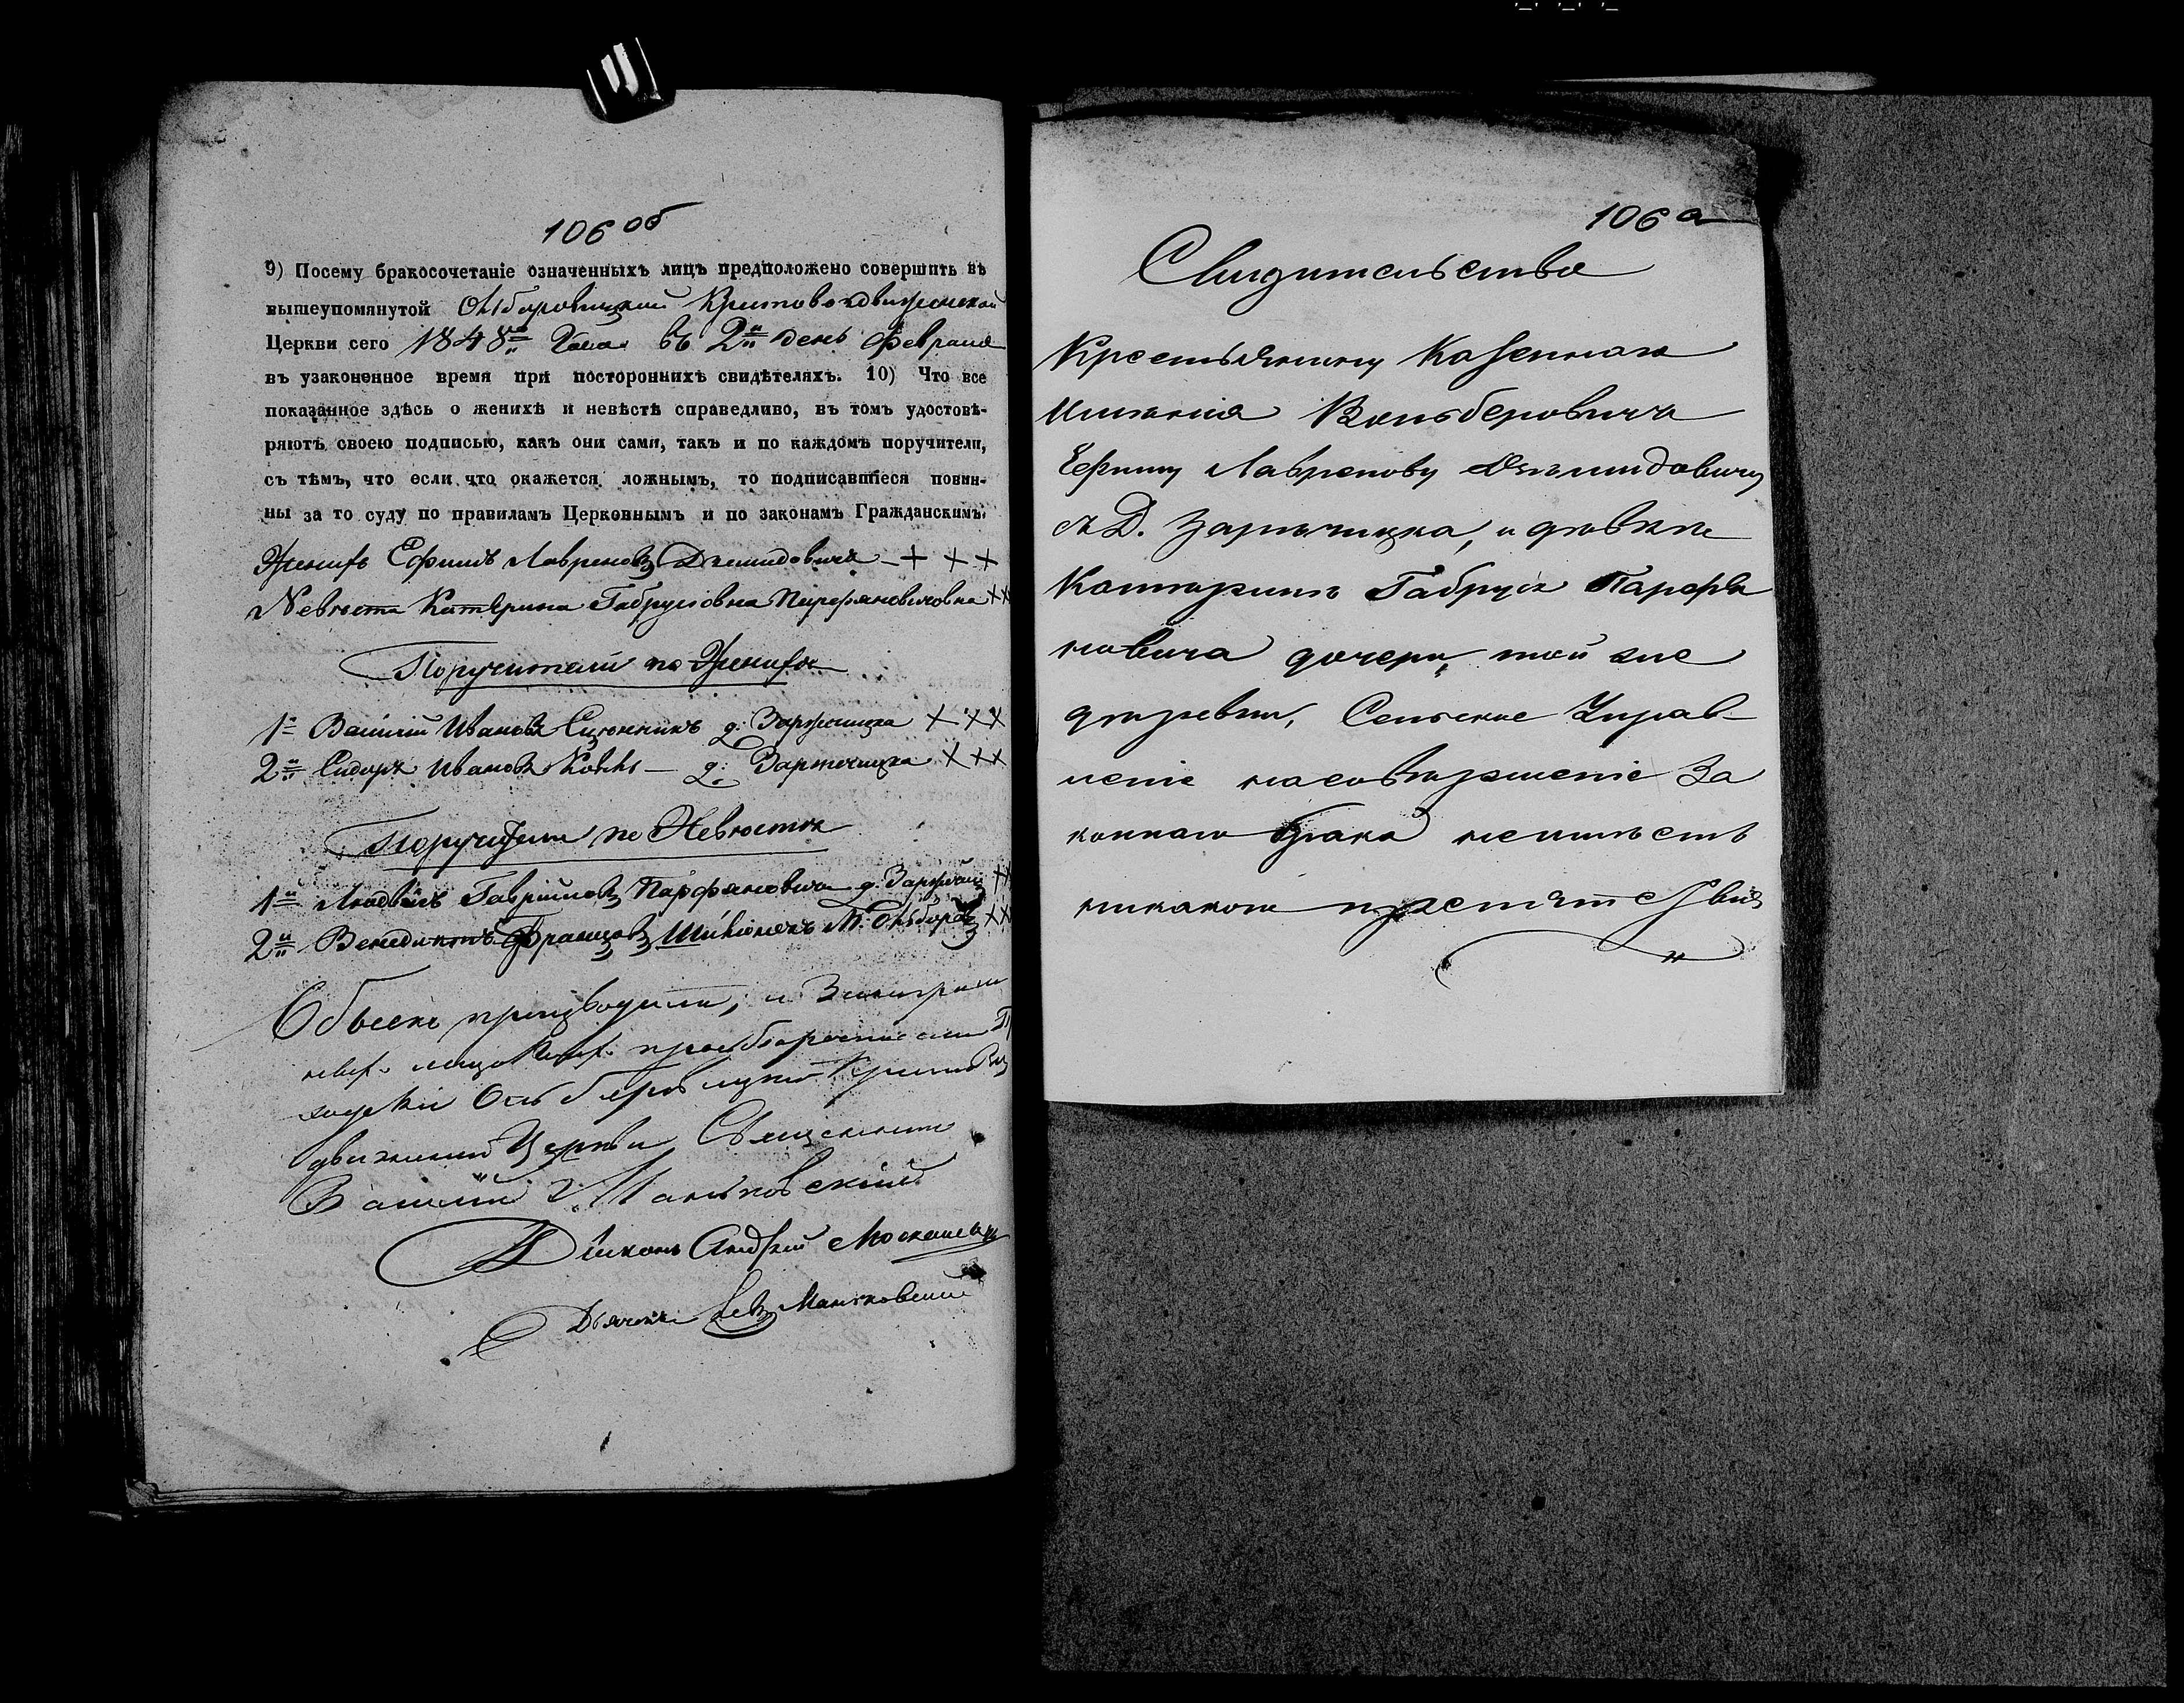 106 об
9) Посему бракосочетаніе означенныхъ лицъ предположено совершить въ
вышеупомянутой Ольберовицкой Крестовоздвиженской
Церкви сего 1848го Года въ 2й день Февраля
въ узаконенное время при постороннихъ свидѣтеляхъ. 10) Что все
показанное здѣсь о женихѣ и невѣстѣ справедливо, въ томъ удостовѣ-
ряютъ своею подписью, какъ они сами, такъ и по каждомъ поручители,
съ тѣмъ, что если что окажется ложнымъ, то подписавшіеся повин-
ны за то суду по правиламъ Церковнымъ и по законамъ Гражданскимъ.
Женихъ Ефимъ Лавреновъ Демидовичъ - + + +
Невѣста Катерина Габрусовна Парфяновичовна ××
Поручители по Женихѣ
1й Василій Ивановъ д: Заречицка × × ×
2й Сидоръ Ивановъ д: Заречицка × × ×
Поручители по Невѣстѣ
1й Людвикъ Гавриловъ Парфяновичъ д. ××
2й Венедиктъ Францовъ М. ××
Обыскъ производили, и
Церкви Священникъ
Василій Маньковскій
Діаконъ Андрей
Дьячокъ Левъ Маньковскій
106 а
Свидетельство
Крестьянину Казеннаго
имения Вольберовичъ
Ефиму Лавренову Демидовичу
съ Д. Заречицка, и девкѣ
Катерине Габруся Парфя
новича дочери, той же
деревни, Сельское Управ-
леніе насовершеніе За
коннаго брака неимѣетъ
никакого препятствія